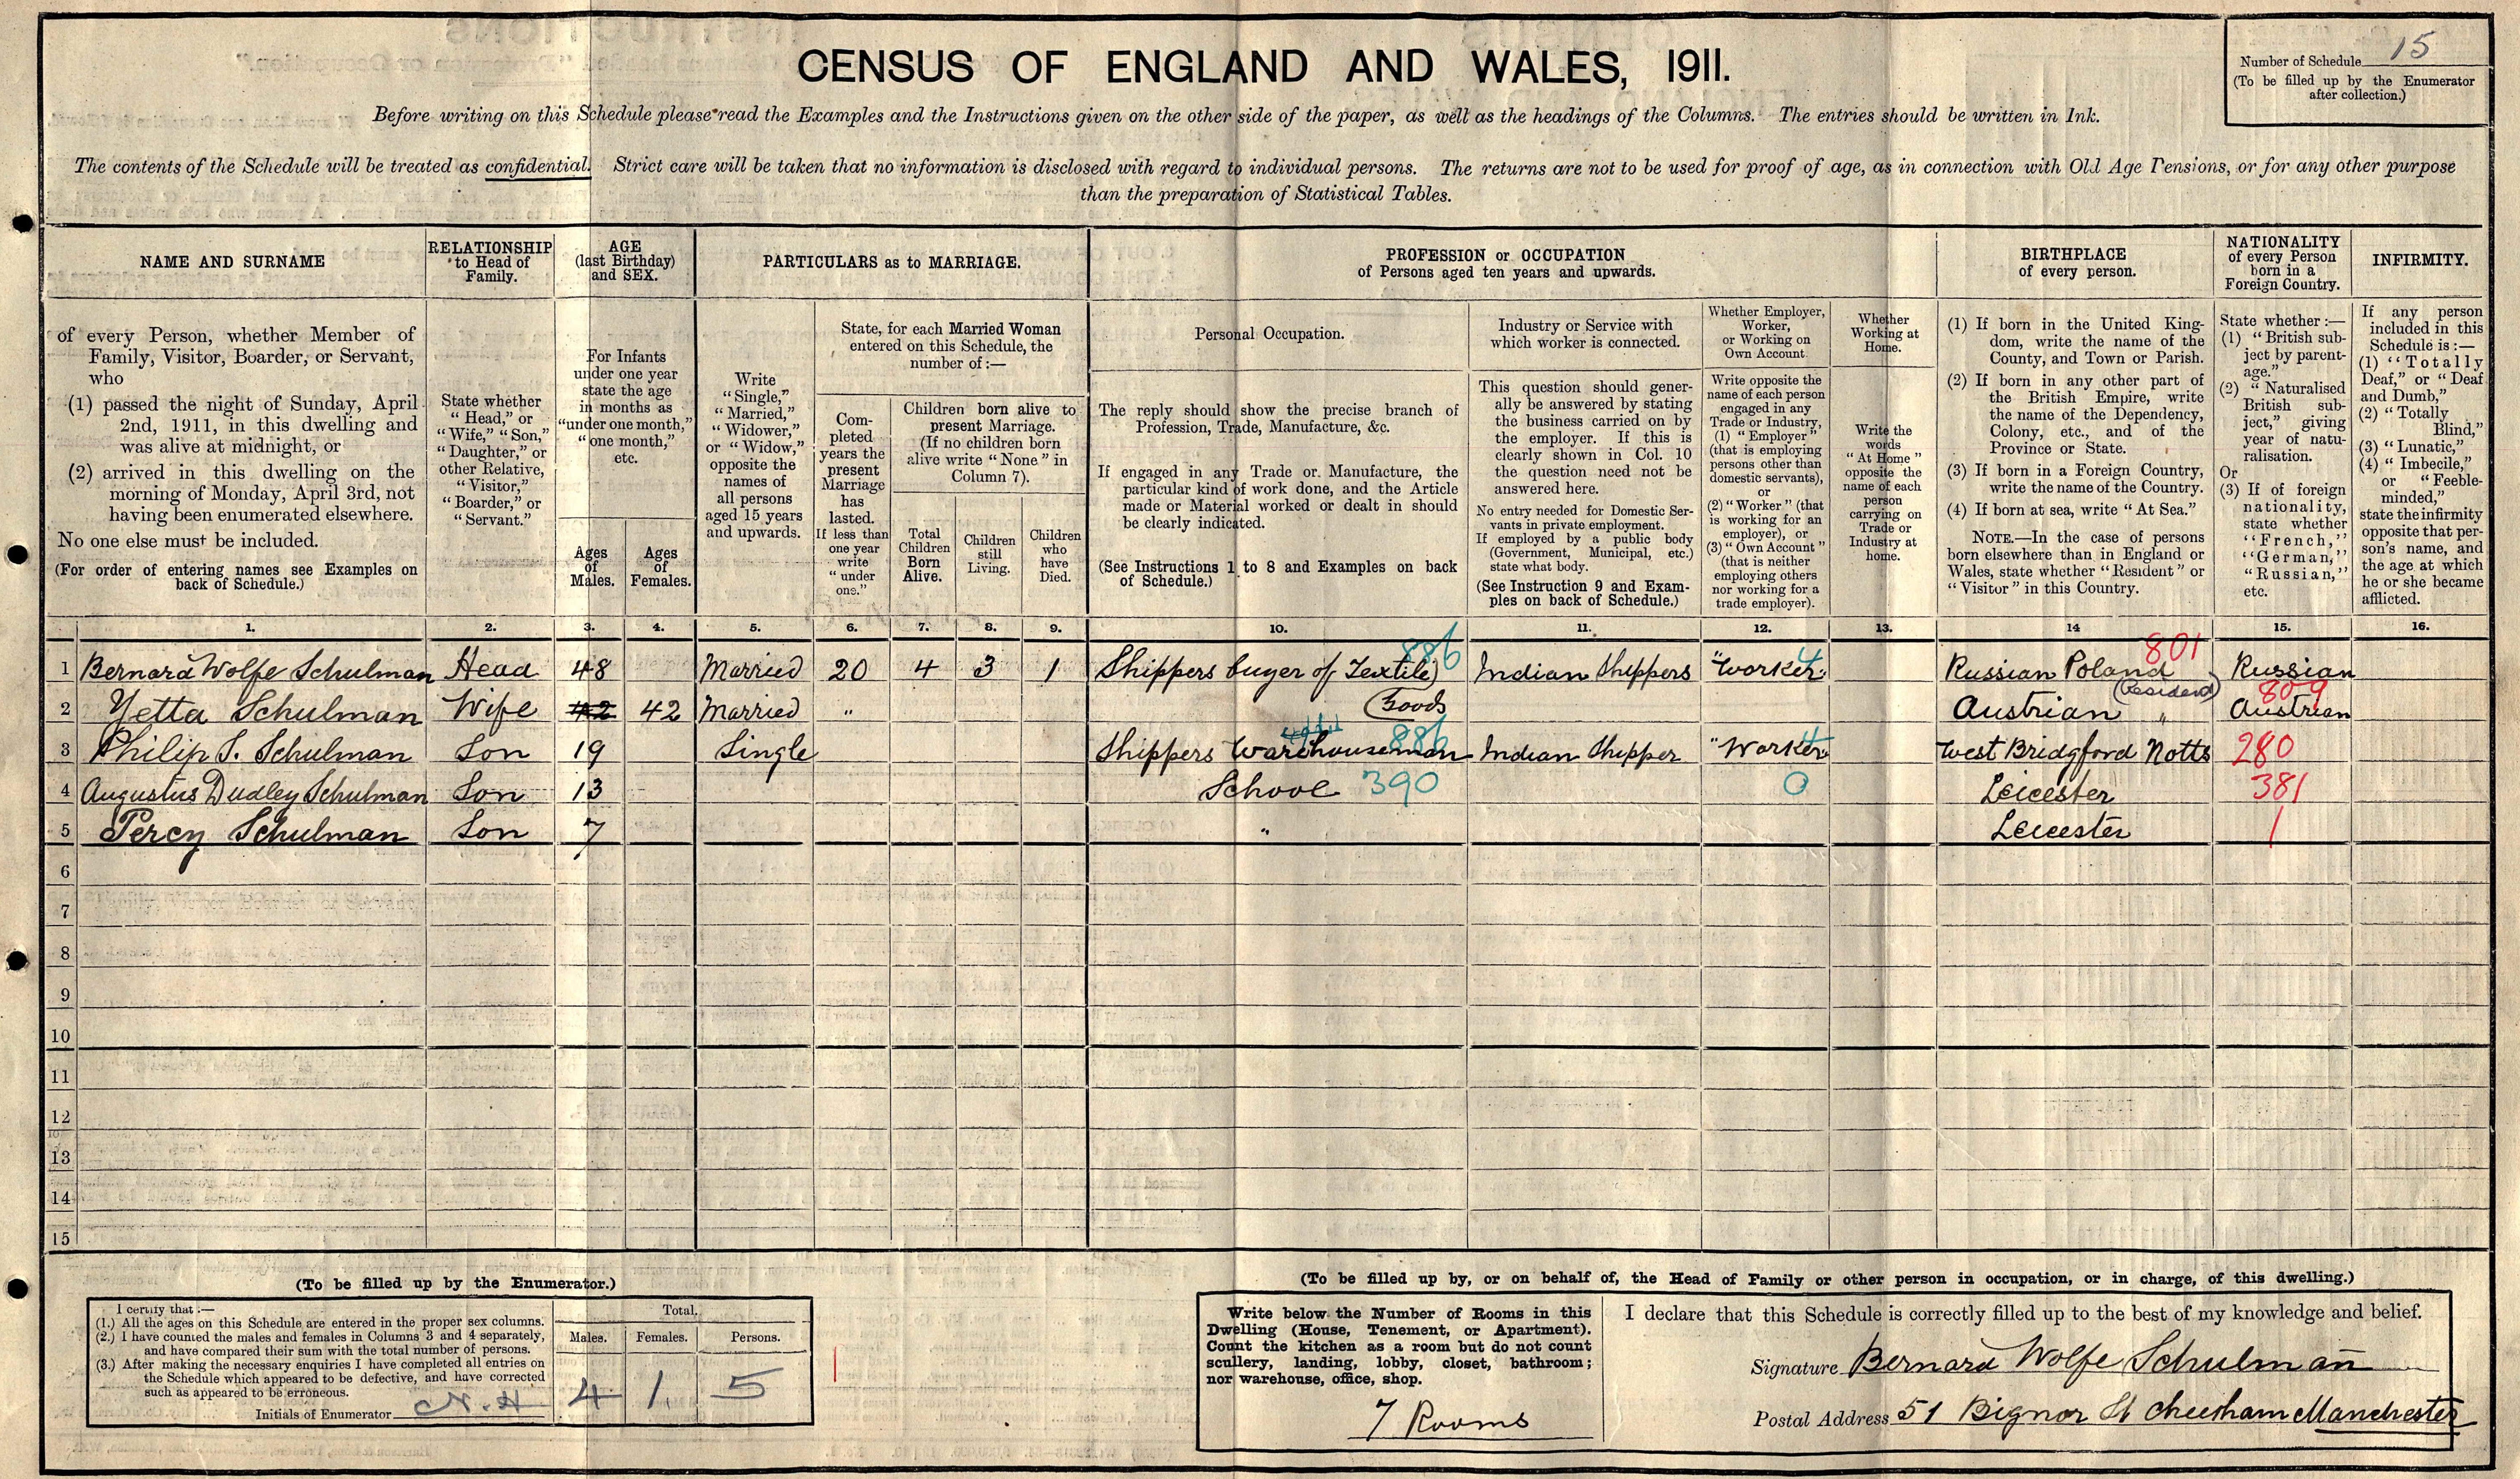 CENSUS OF ENGLAND AND WALES, 1911.
Number of Schedule 15
(To be filled up by the Enumerator
after collection.)
Before writing on this Schedule please read the Examples and the Instructions given on the other side of the paper, as well as the headings of the Columns. The entries should be written in Ink.
The contents of the Schedule will be treated as confidential. Strict care will be taken that no information is disclosed with regard to individual persons. The returns are not to be used for proof of age, as in connection with Old Age Pensions, or for any other purpose
than the preparation of Statistical Tables.
NAME AND SURNAME
of every Person, whether Member of
Family, Visitor, Boarder, or Servant,
who
(1) passed the night of Sunday, April
2nd, 1911, in this dwelling and
was alive at midnight, or
(2) arrived in this dwelling on the
morning of Monday, April 3rd, not
having been enumerated elsewhere.
No one else must be included.
(For order of entering names see Examples on
back of Schedule.)
RELATIONSHIP
to Head of
Family.
State whether
"Head," or
"Wife," "Son,"
"Daughter," or
other Relative,
"Visitor,"
"Boarder," or
"Servant."
AGE
(last Birthday)
and SEX.
For Infants
under one year
state the age
in months as
"under one month,"
"one month,"
etc.
Ages
of
Males.
Ages
of
Females.
PARTICULARS as to MARRIAGE.
Write
"Single,"
"Married,"
"Widower,"
or "Widow,"
opposite the
names of
all persons
aged 15 years
and upwards.
State, for each Married Woman
entered on this Schedule, the
number of :—
Com-
pleted
years the
present
Marriage
has
lasted.
If less than
one year
write
"under
one."
Children born alive to
present Marriage.
(If no children born
alive write "None" in
Column 7).
Total
Children
Born
Alive.
Children
still
Living.
Children
who
have
Died.
PROFESSION or OCCUPATION
of Persons aged ten years and upwards.
Personal Occupation.
The reply should show the precise branch of
Profession, Trade, Manufacture, &c.
If engaged in any Trade or Manufacture, the
particular kind of work done, and the Article
made or Material worked or dealt in should
be clearly indicated.
(See Instructions 1 to 8 and Examples on back
of Schedule.)
Industry or Service with
which worker is connected.
This question should gener-
ally be answered by stating
the business carried on by
the employer. If this is
clearly shown in Col. 10
the question need not be
answered here.
No entry needed for Domestic Ser-
vants in private employment.
If employed by a public body
(Government, Municipal, etc.)
state what body.
(See Instruction 9 and Exam-
ples on back of Schedule.)
Whether Employer,
Worker,
or Working on
Own Account.
Write opposite the
name of each person
engaged in any
Trade or Industry,
(1) "Employer"
(that is employing
persons other than
domestic servants),
or
(2) "Worker" (that
is working for an
employer), or
(3) "Own Account"
(that is neither
employing others
nor working for a
trade employer).
Whether
Working at
Home.
Write the
words
"At Home"
opposite the
name of each
person
carrying on
Trade or
Industry at
home.
BIRTHPLACE
of every person.
(1) If born in the United King-
dom, write the name of the
County, and Town or Parish.
(2) If born in any other part of
the British Empire, write
the name of the Dependency,
Colony, etc., and of the
Province or State.
(3) If born in a Foreign Country,
write the name of the Country.
(4) If born at sea, write "At Sea."
NOTE.—In the case of persons
born elsewhere than in England or
Wales, state whether "Resident" or
"Visitor" in this Country.
NATIONALITY
of every Person
born in a
Foreign Country.
State whether :—
(1) "British sub-
ject by parent-
age."
(2) "Naturalised
British sub-
ject," giving
year of natu-
ralisation.
Or
(3) If of foreign
nationality,
state whether
"French,"
"German,"
"Russian,"
etc.
INFIRMITY.
If any person
included in this
Schedule is :—
(1) "Totally
Deaf," or "Deaf
and Dumb,"
(2) "Totally
Blind,"
(3) "Lunatic,"
(4) "Imbecile,"
or "Feeble-
minded,"
state the infirmity
opposite that per-
son's name, and
the age at which
he or she became
afflicted.
1. 2. 3. 4. 5. 6. 7. 8. 9. 10. 11. 12. 13. 14 15. 16.
886 4 801
1 Bernard Wolfe Schulman Head 48 Married 20 4 3 1 Shippers buyer of Textile Indian Shippers "Worker" Russian Poland Russian
(Resident) 809
2 Yetta Schulman Wife 42 42 Married " Goods Austrian " Austrian
886 4
3 Philip S. Schulman Son 19 Single Shippers Warehouseman Indian Shipper "Worker" West Bridgford Notts 280
4 Augustus Dudley Schulman Son 13 School 390 0 Leicester 381
5 Percy Schulman Son 7 " Leicester 1
6
7
8
9
10
11
12
13
14
15
(To be filled up by the Enumerator.)
I certify that :—
(1.) All the ages on this Schedule are entered in the proper sex columns.
(2.) I have counted the males and females in Columns 3 and 4 separately,
and have compared their sum with the total number of persons.
(3.) After making the necessary enquiries I have completed all entries on
the Schedule which appeared to be defective, and have corrected
such as appeared to be erroneous.
Initials of Enumerator N.H
Total.
Males. Females. Persons.
4 1. 5
(To be filled up by, or on behalf of, the Head of Family or other person in occupation, or in charge, of this dwelling.)
Write below the Number of Rooms in this
Dwelling (House, Tenement, or Apartment).
Count the kitchen as a room but do not count
scullery, landing, lobby, closet, bathroom;
nor warehouse, office, shop.
7 Rooms
I declare that this Schedule is correctly filled up to the best of my knowledge and belief.
Signature Bernard Wolfe Schulman
Postal Address 51 Bignor St Cheetham Manchester